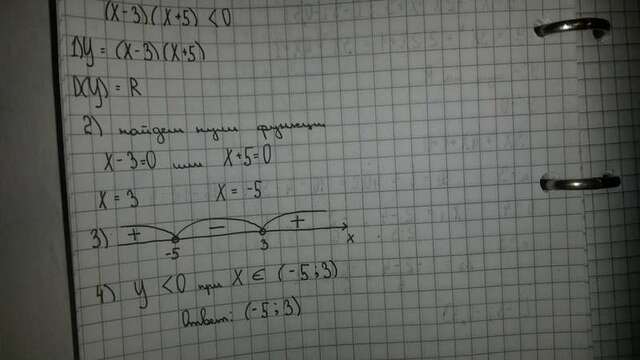 (x-3)(x+5) <0
1) y = (x-3)(x+5)
D(y) = R
2) найдем нули функции
x-3=0 или x+5=0
x = 3 x = -5
3) + - +
-5 3 x
4) y <0 при x ∈ (-5;3)
Ответ: (-5;3)